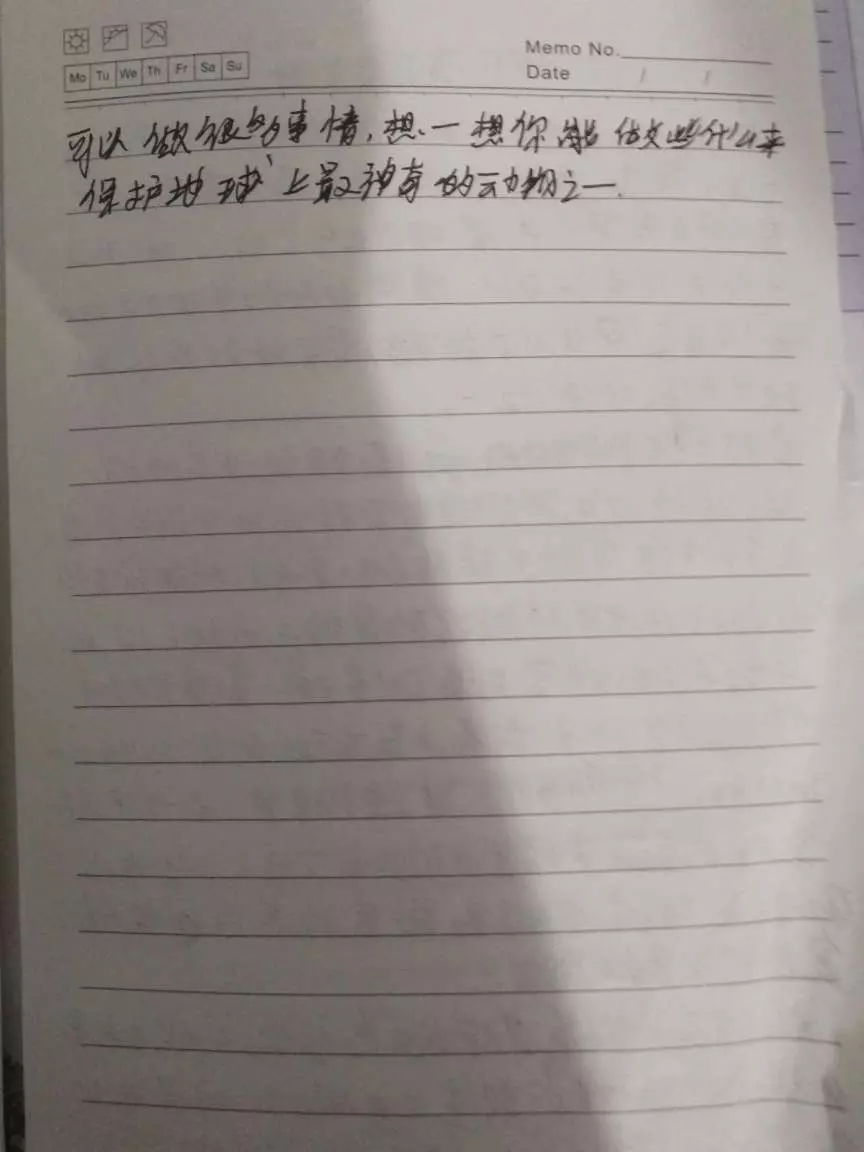 Memo No.
Mo Tu We Th Fr Sa Su
Date / /
可以做很多事情,想一想你能做些什么来
保护地球上最神奇的动物之一.